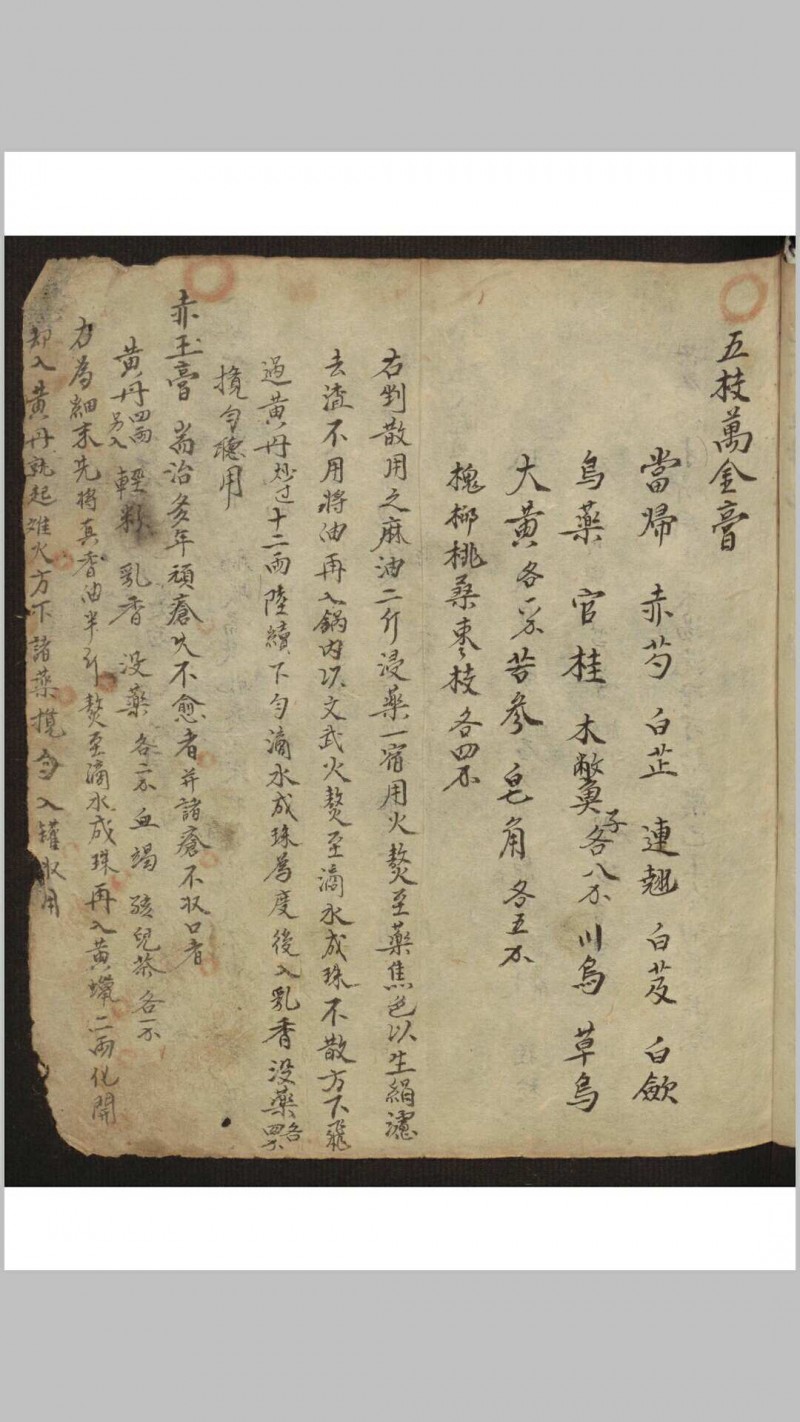 五枝萬金膏
當帰 赤芍 白芷 連翹 白芨 白歛
烏藥 官桂 木鱉子各八不 川烏 草烏
大黃各一不 苦參 皂角 各五不
槐柳桃桑枣枝各四不
右剉散用之麻油二斤浸藥一宿用火熬至藥焦色以生絹濾
去渣不用將油再入鍋內以文武火熬至滴水成珠不散方下飛
過黃丹炒过十二兩陸續下勻滴水成珠為度後入乳香没藥各四不
攪勻聴用
赤玉膏 耑治多年頑瘡久不愈者并諸瘡不收口者
黃丹四兩另入 輕粉 乳香 没藥 各二不 血竭 孩兒茶各一不
為細末先將真香油半斤熬至滴水成珠再入黃蠟二兩化開
却入黃丹就起離火方下諸藥攪勻入罐收用